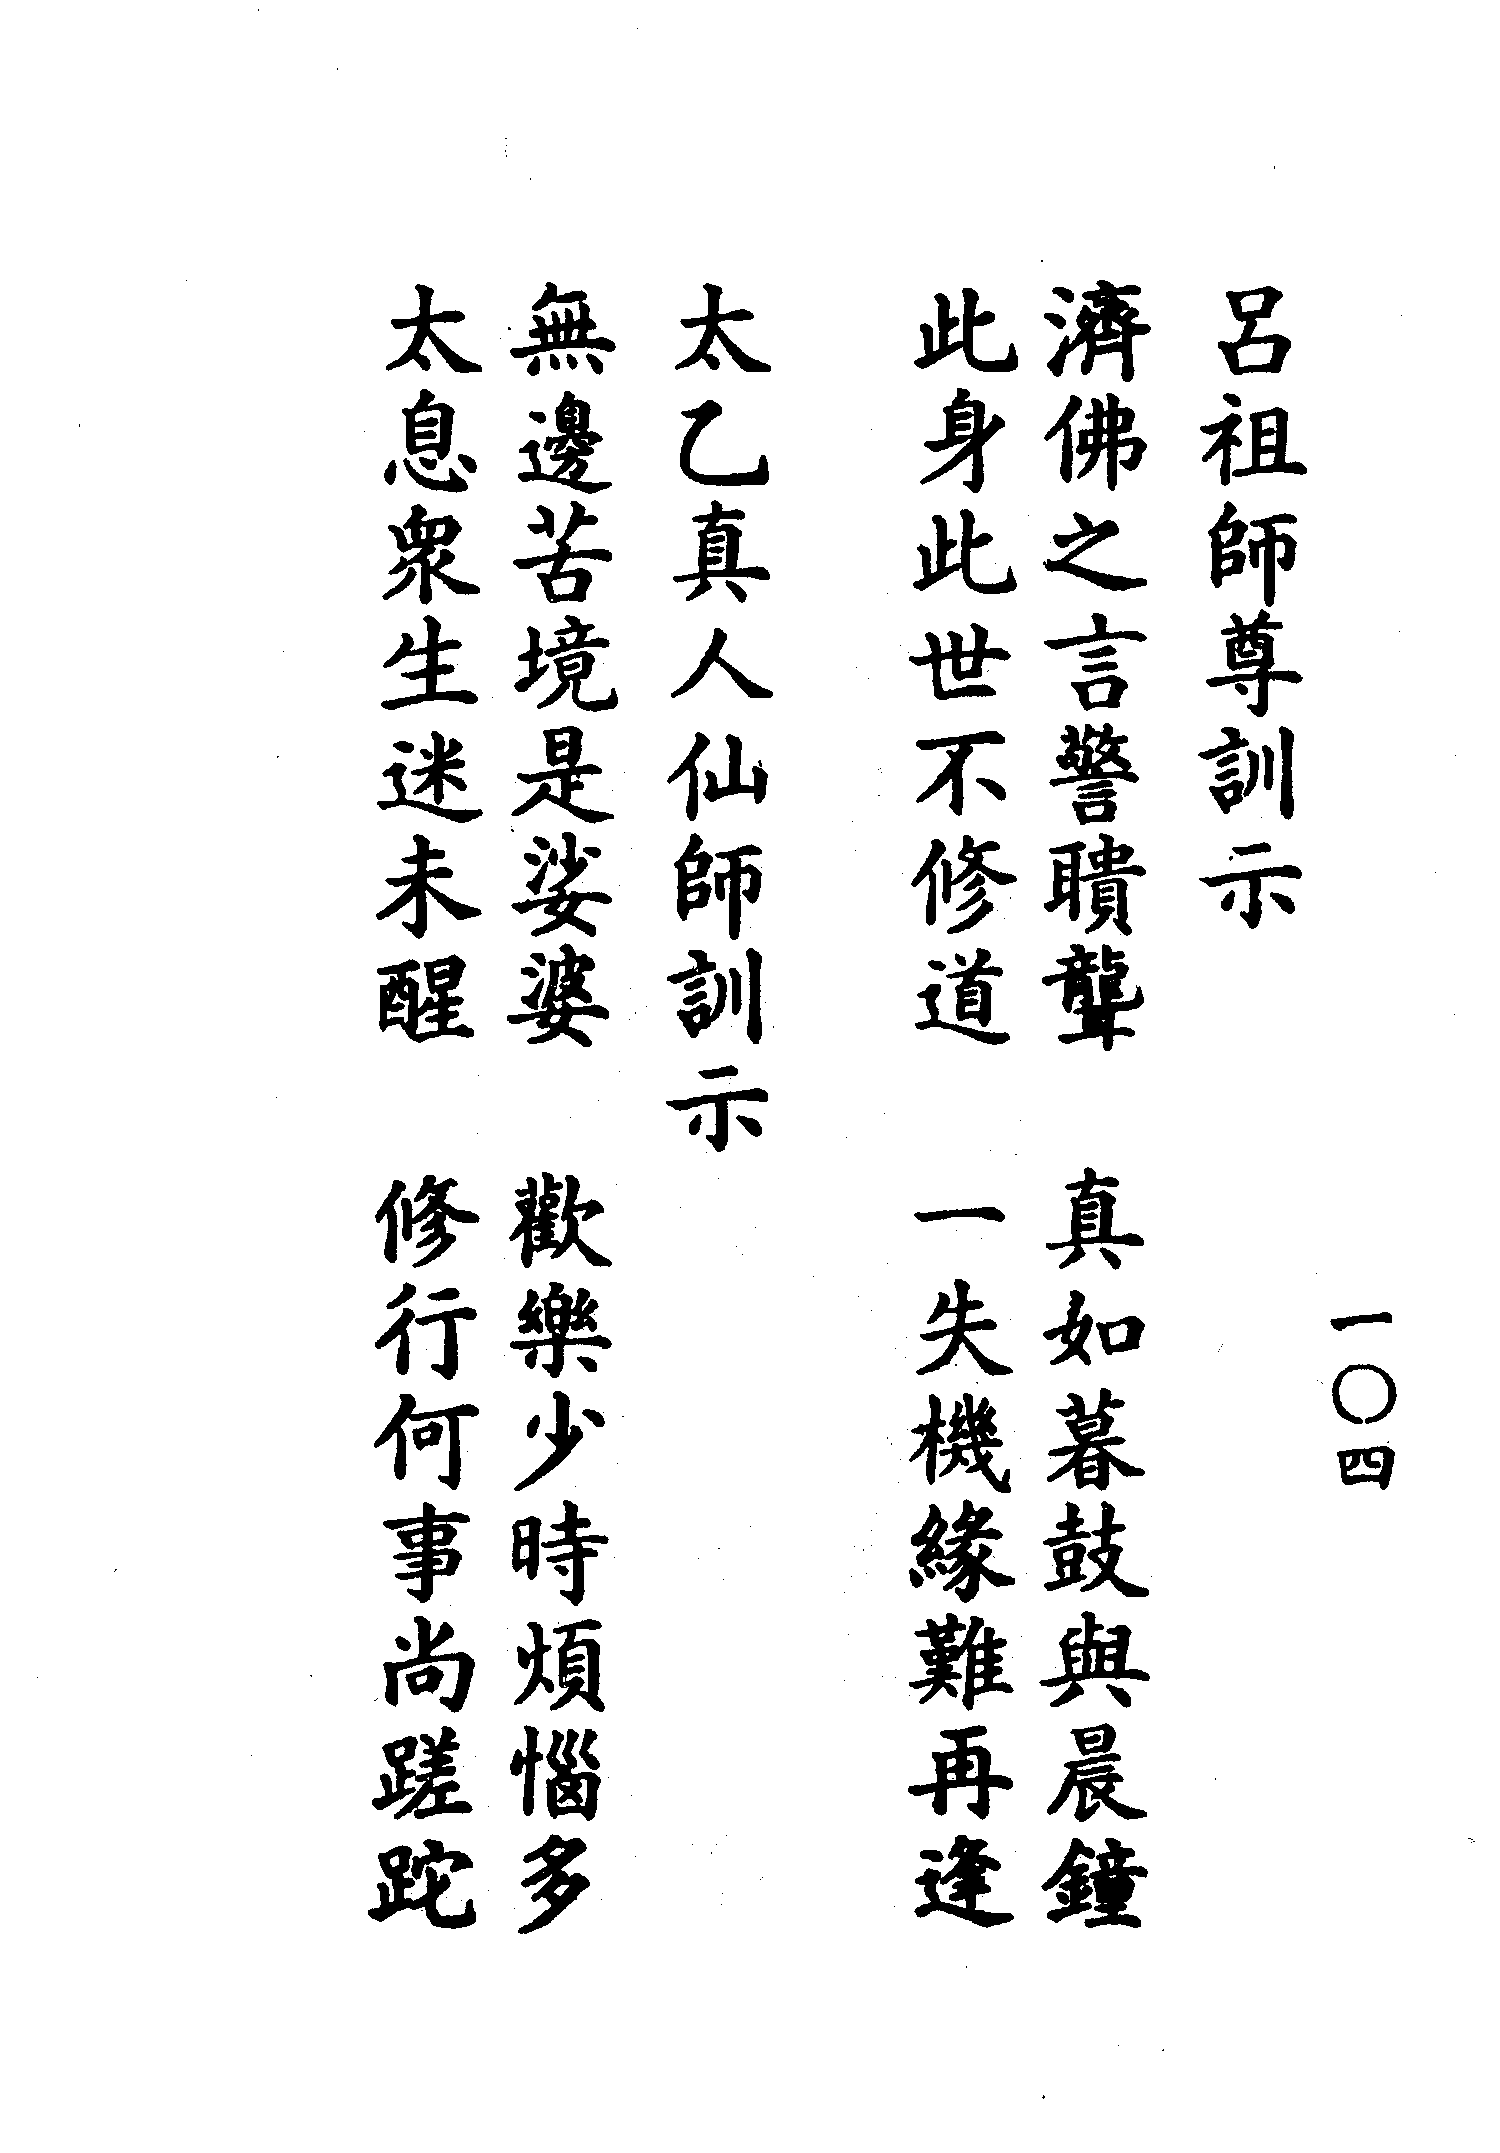 一〇四
呂祖師尊訓示
濟佛之言警聵聾　真如暮鼓與晨鐘
此身此世不修道　一失機緣難再逢
太乙真人仙師訓示
無邊苦境是娑婆　歡樂少時煩惱多
太息眾生迷未醒　修行何事尚蹉跎